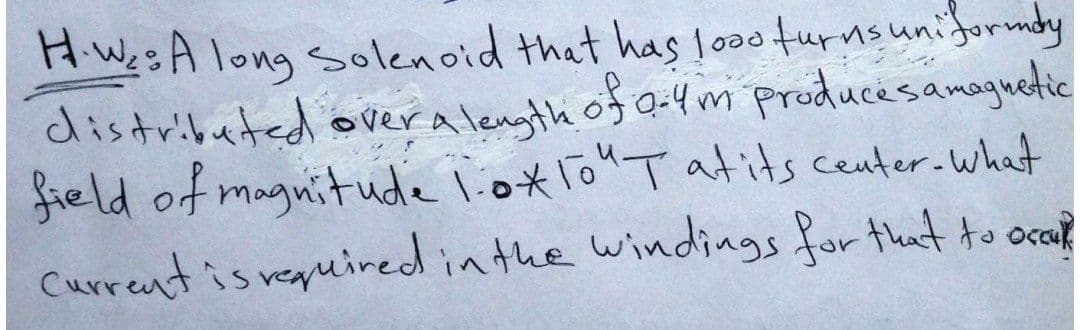 H.W₂: A long solenoid that has 1000 turns uniformdy
distributed over a length of 0.4m produces a magnetic
field of magnitude 1.0*10⁻⁴T at its center. what
current is required in the windings for that to occur?